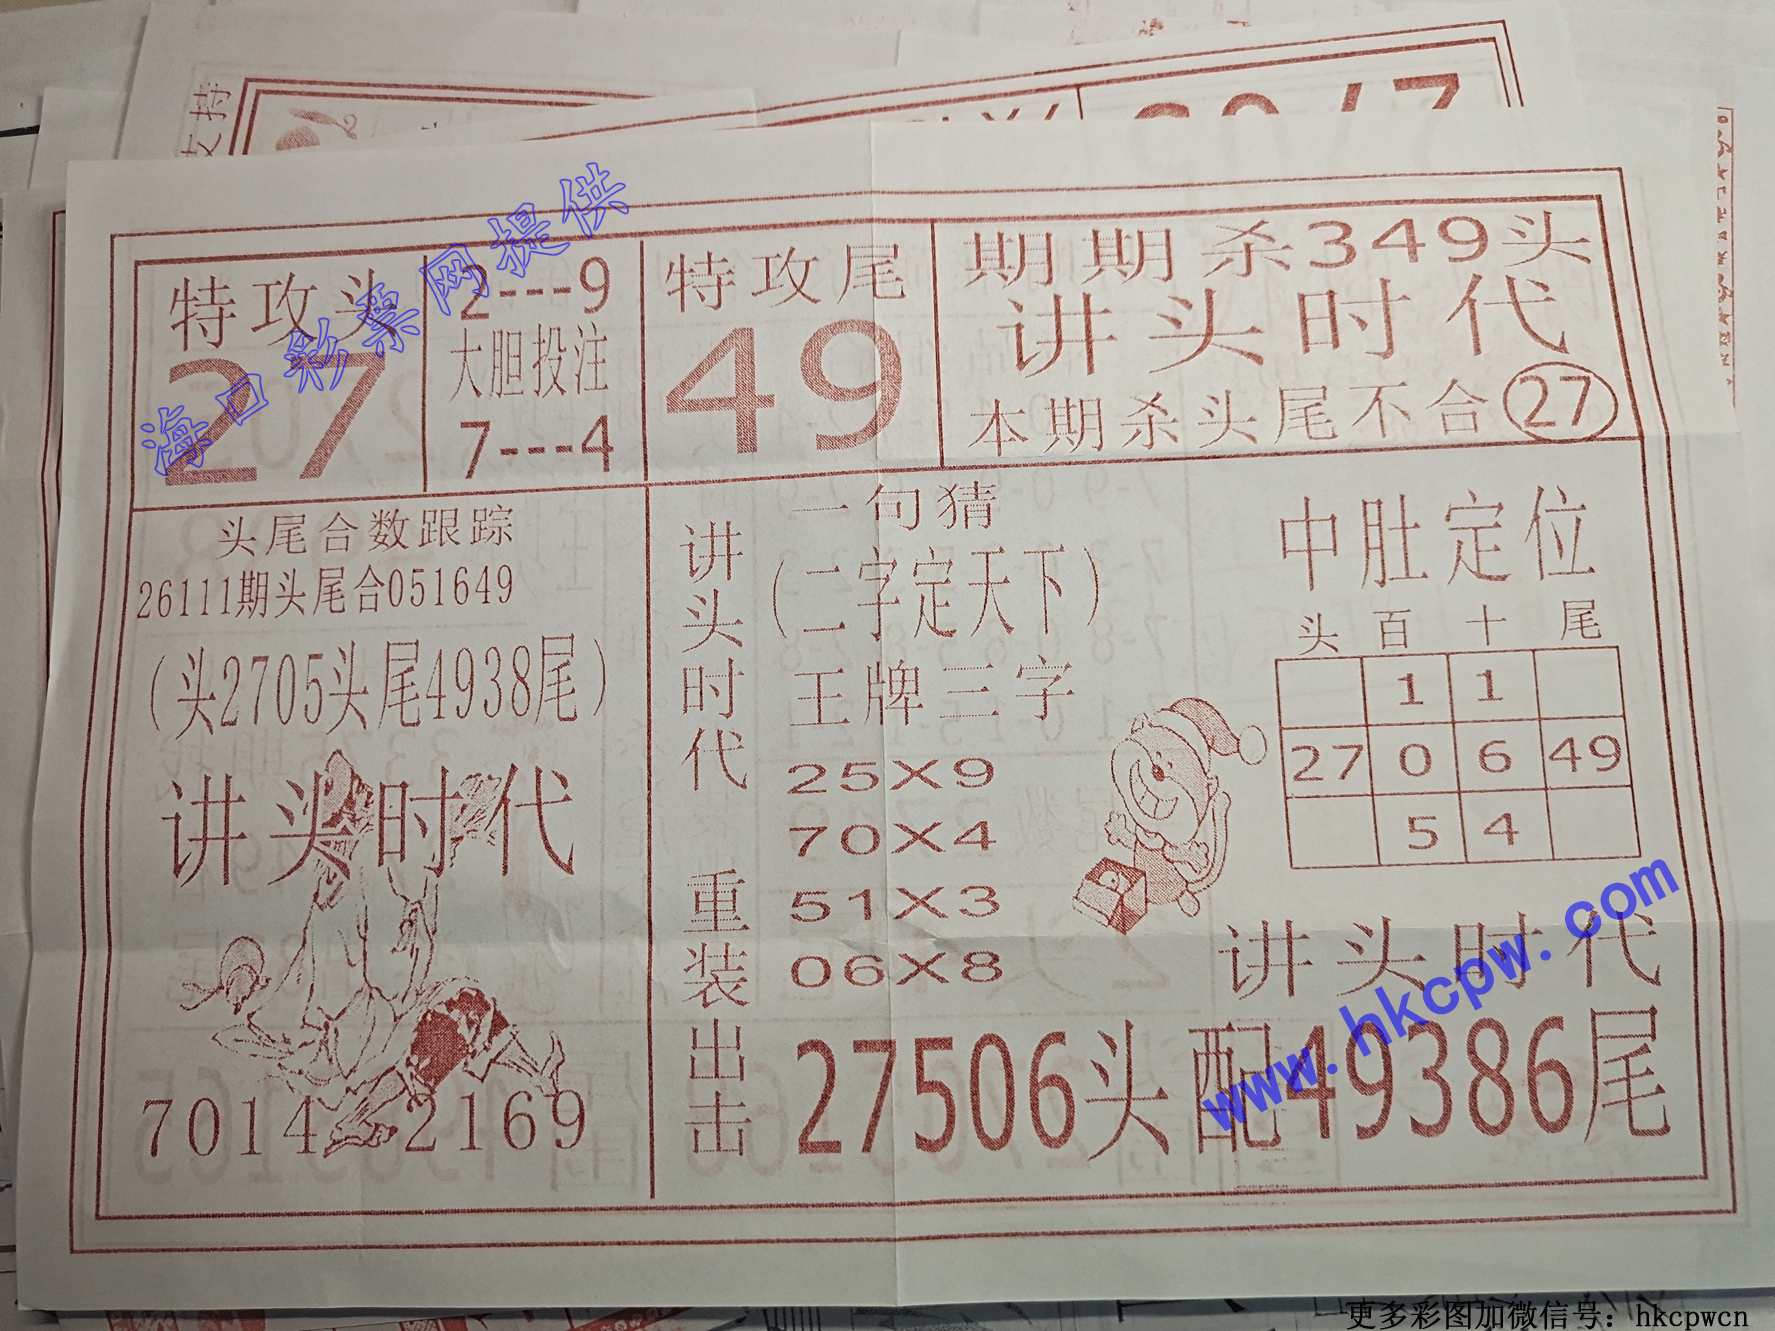 支持
特攻头
27
2---9
大胆投注
7---4
特攻尾
49
期期杀349头
讲头时代
本期杀头尾不合27
头尾合数跟踪
26111期头尾合051649
(头2705头尾4938尾)
讲头时代
7014 2169
讲头时代 重装出击
一句猜
(二字定天下)
王牌三字
25X9
70X4
51X3
06X8
中肚定位
头 百 十 尾
1 1
27 0 6 49
5 4
讲头时代
27506头 配49386尾
海口彩票网提供
www.hkcpw.com
更多彩图加微信号：hkcpwcn